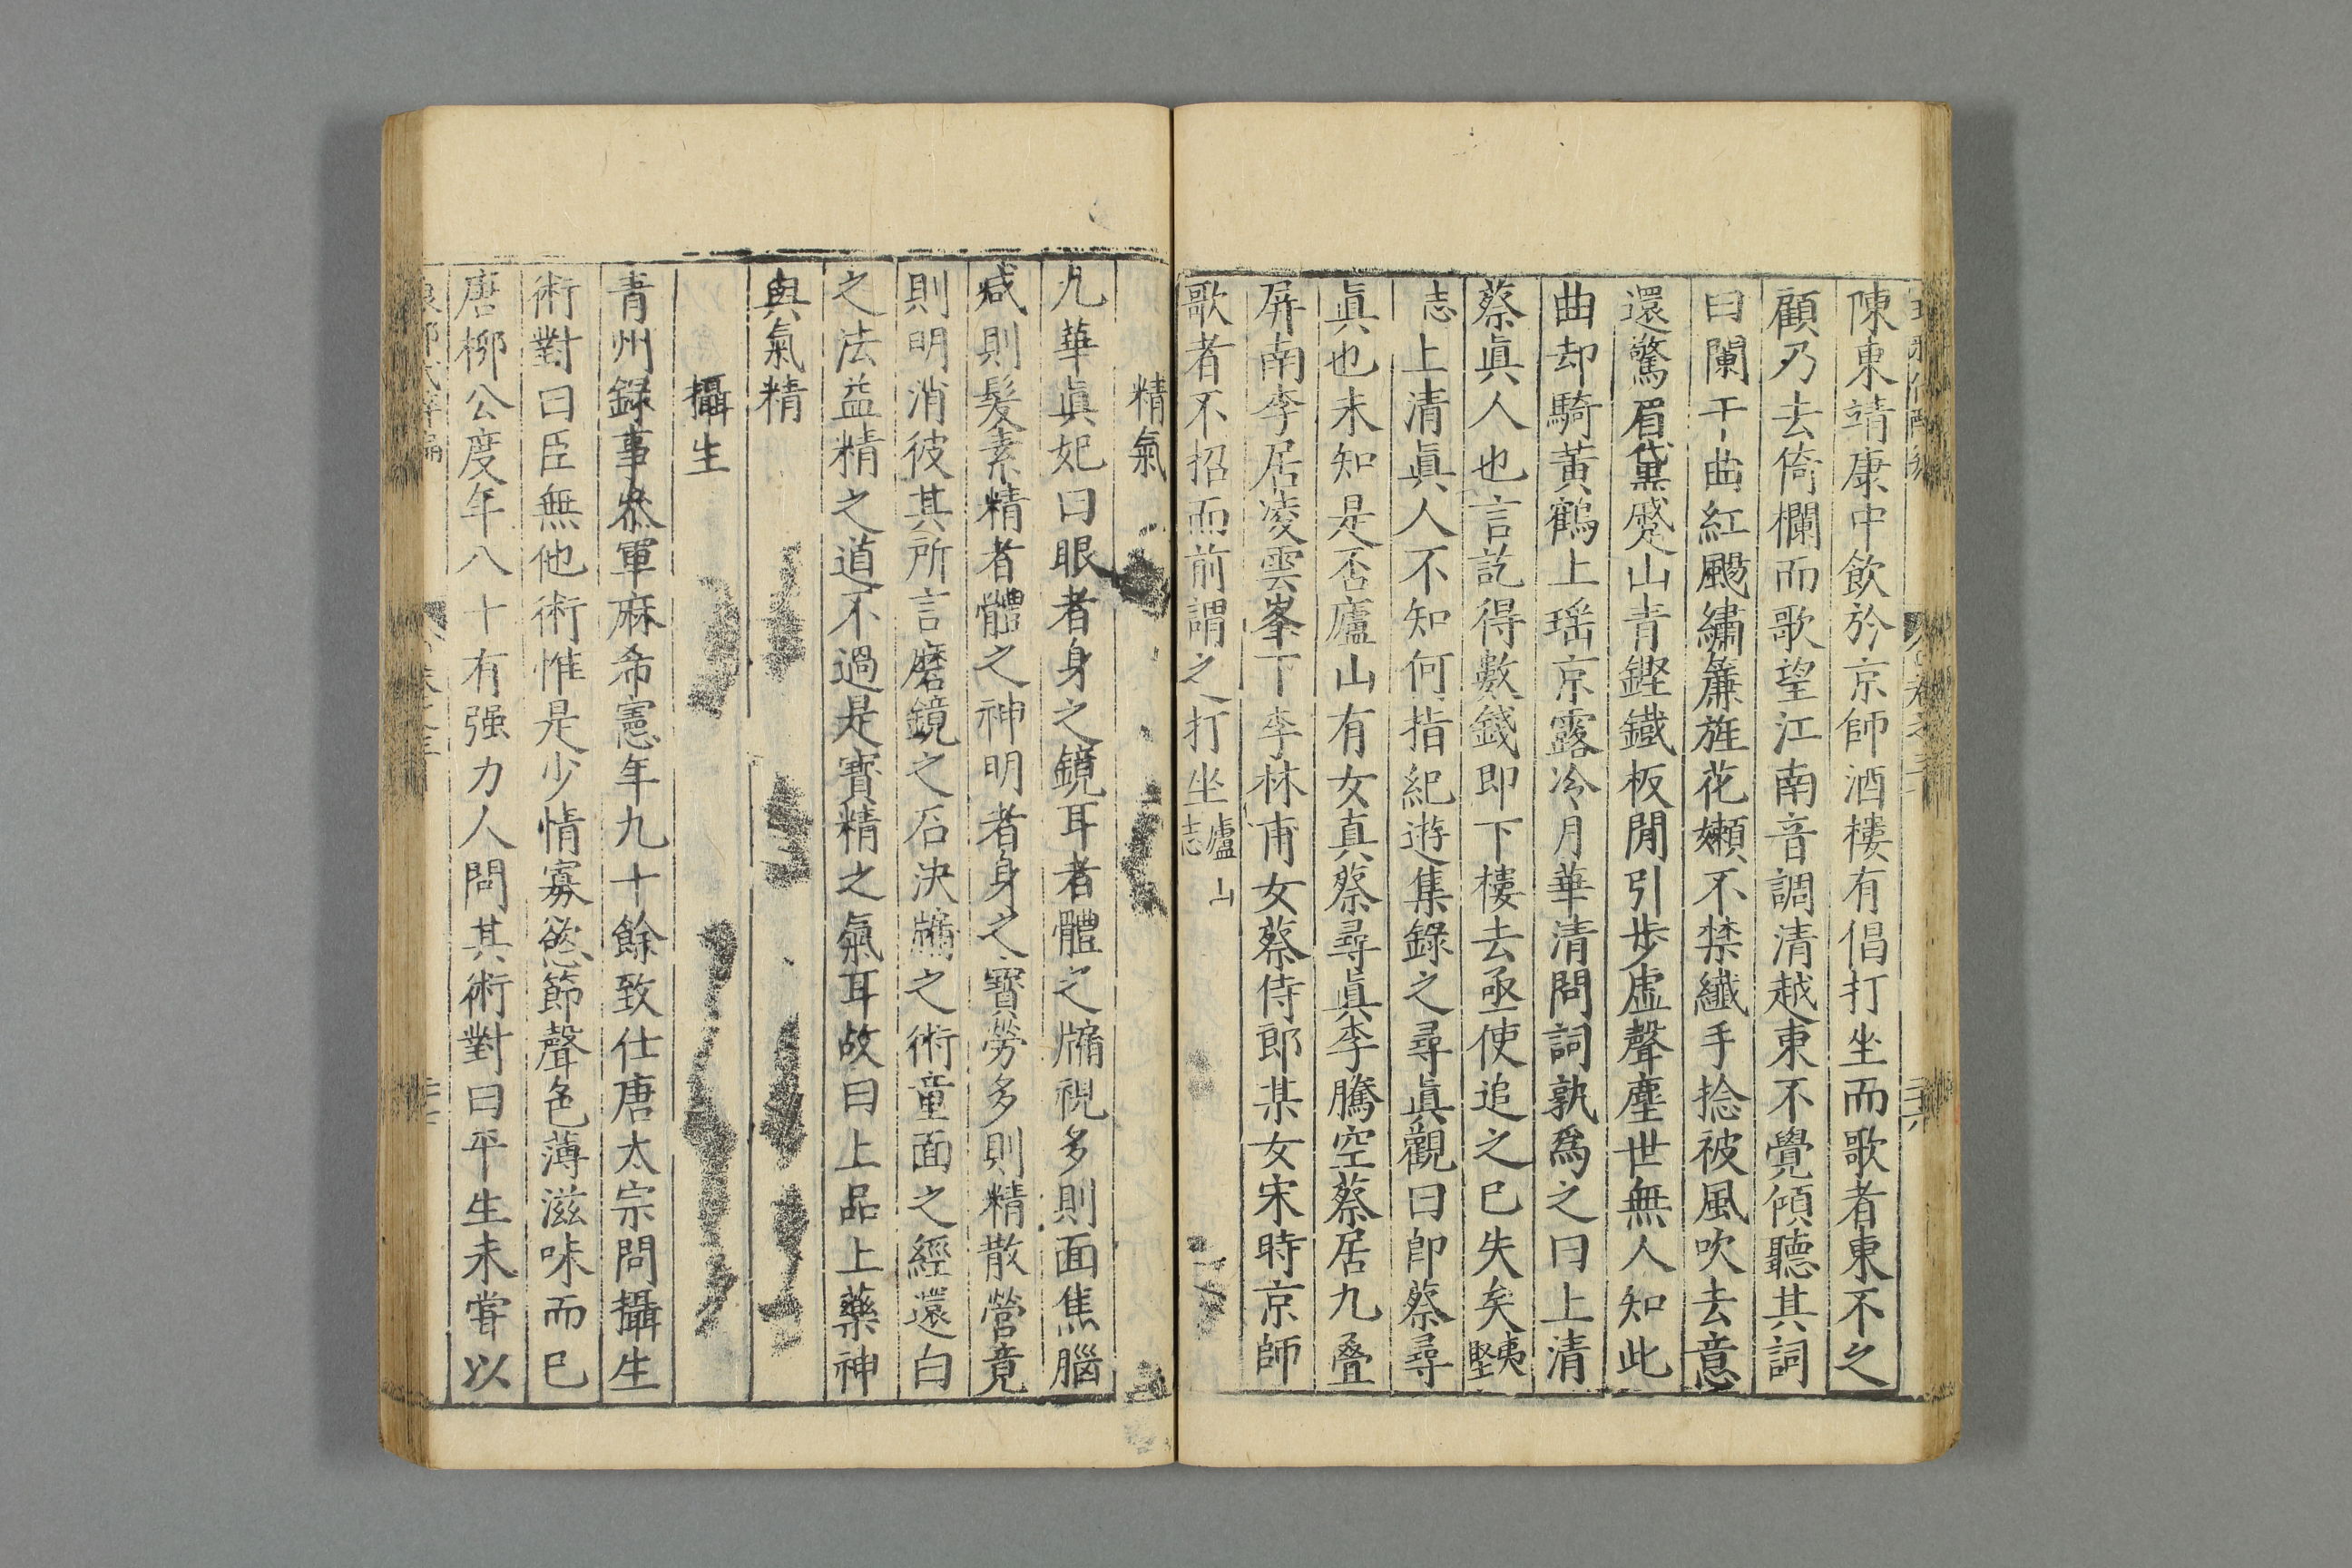 陳東靖康中飲於京師酒樓有倡打坐而歌者東不之
顧乃去倚欄而歌望江南音調清越東不覺傾聽其詞
曰闌干曲紅颺繡簾旌花嬾不禁纖手捻被風吹去意
還驚眉黛蹙山青鏗鐵板閒引步虛聲塵世無人知此
曲却騎黃鶴上瑤京露冷月華清問詞孰爲之曰上清
蔡眞人也言訖得數錢即下樓去亟使追之已失矣夷堅
志上清眞人不知何指紀遊集錄之尋眞觀曰即蔡尋
眞也未知是否廬山有女真蔡尋眞李騰空蔡居九疊
屏南李居凌雲峯下李林甫女蔡侍郎某女宋時京師
歌者不招而前謂之打坐廬山志
精氣
九華眞妃曰眼者身之鏡耳者體之牖視多則面焦腦
減則髮素精者體之神明者身之寳勞多則精散營竟
則明消彼其所言磨鏡之石決牖之術童面之經還白
之法益精之道不過是寳精之氣耳故曰上品上藥神
與氣精
攝生
青州錄事叅軍麻希憲年九十餘致仕唐太宗問攝生
術對曰臣無他術惟是少情寡慾節聲色薄滋味而已
唐柳公度年八十有强力人問其術對曰平生未甞以